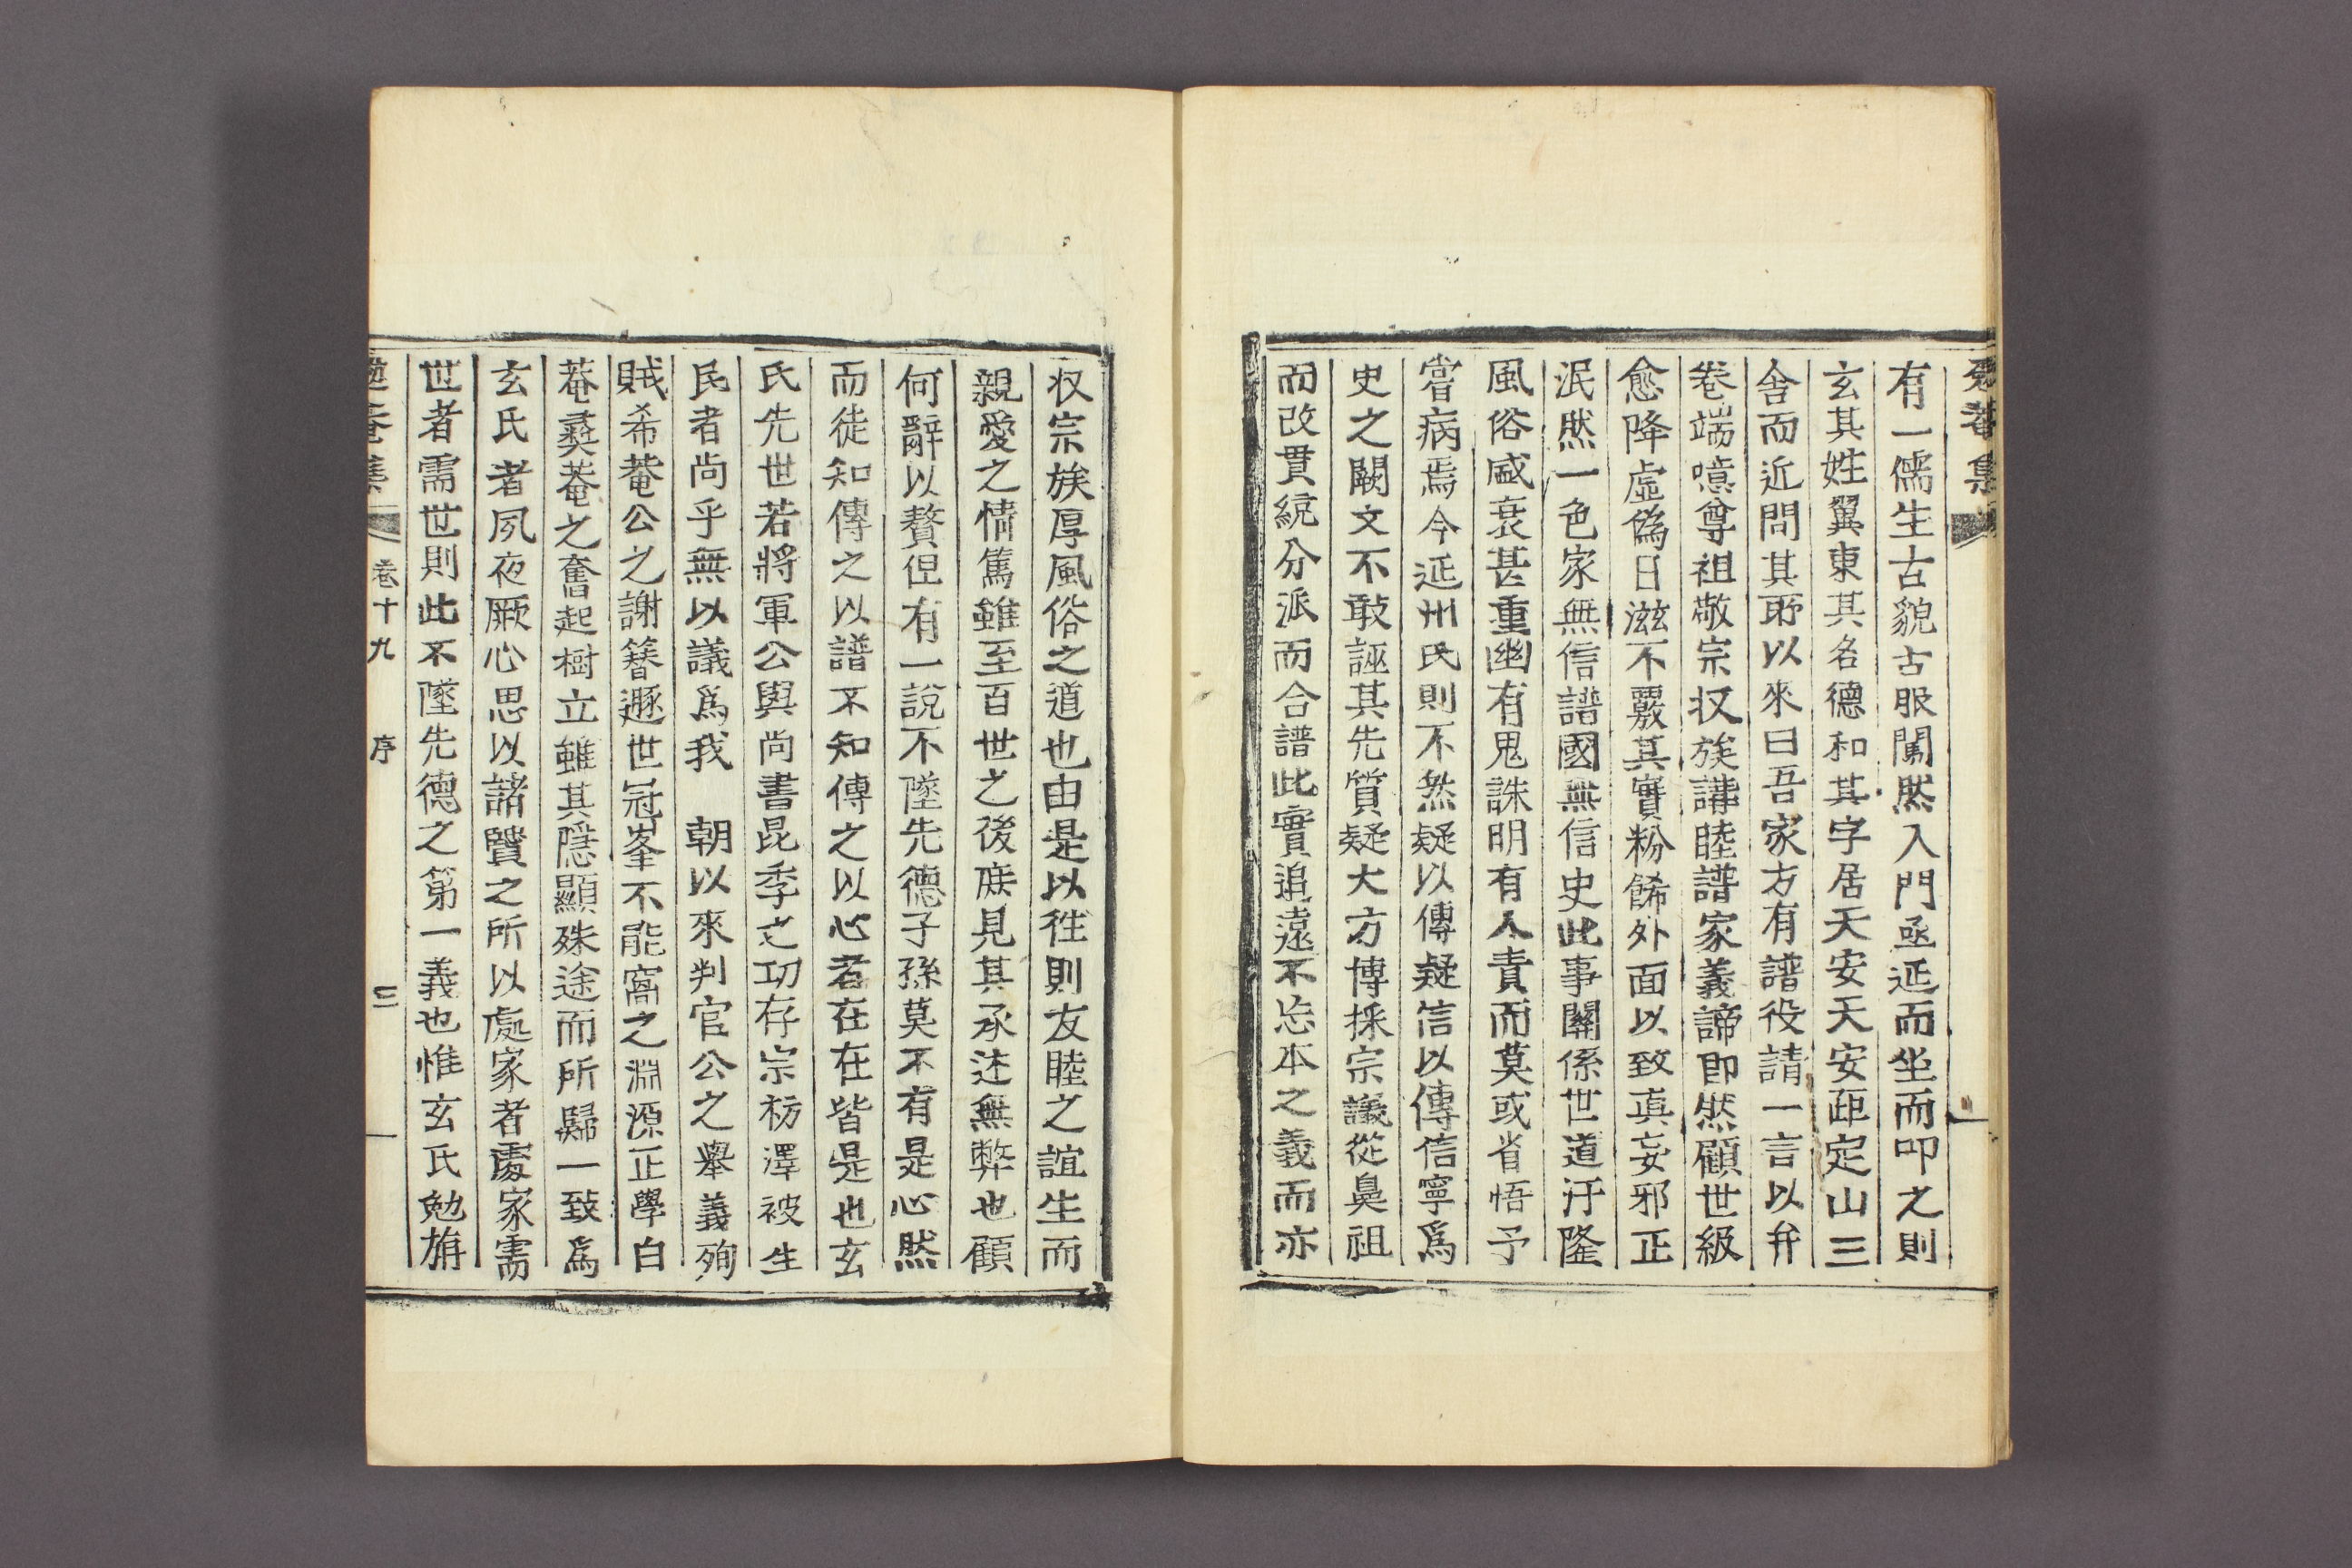 菴集
有一儒生古貌古服闖然入門亟延而坐而叩之則
玄其姓翼東其名德和其字居天安天安距定山三
舍而近問其所以來曰吾家方有譜役請一言以弁
卷端噫尊祖敬宗収族講睦譜家義諦即然顧世級
愈降虛僞日滋不覈其實粉餙外面以致眞妄邪正
泯然一色家無信譜國無信史此事關係世道汙隆
風俗盛衰甚重幽有鬼誅明有人責而莫或省悟予
嘗病焉今延州氏則不然疑以傳疑信以傳信寧爲
史之闕文不敢誣其先質疑大方博採宗議從鼻祖
而改貫統分派而合譜此實追遠不忘本之義而亦
収宗族厚風俗之道也由是以徃則友睦之誼生而
親愛之情篤雖至百世之後庶見其承述無弊也顧
何辭以贅但有一說不墜先德子孫莫不有是心然
而徒知傳之以譜不知傳之以心者在在皆是也玄
氏先世若將軍公與尚書昆季之功存宗枋澤被生
民者尚乎無以議爲我　朝以來判官公之舉義殉
賊希菴公之謝簪遯世冠峯不能窩之淵源正學白
菴彛菴之奮起樹立雖其隱顯殊途而所歸一致爲
玄氏者夙夜厥心思以諸賢之所以處家者處家需
世者需世則此不墜先德之第一義也惟玄氏勉旃
菴集　卷十九　序　三